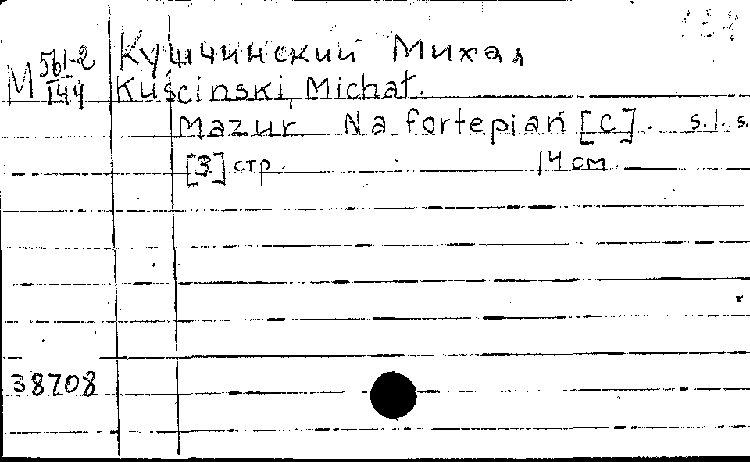 M 561-2/144
Кушчинский Михал
Kuścinski, Michał.
Mazur. Na fortepian [C]. s.l. s.
[3] стр. 14 см.
38708